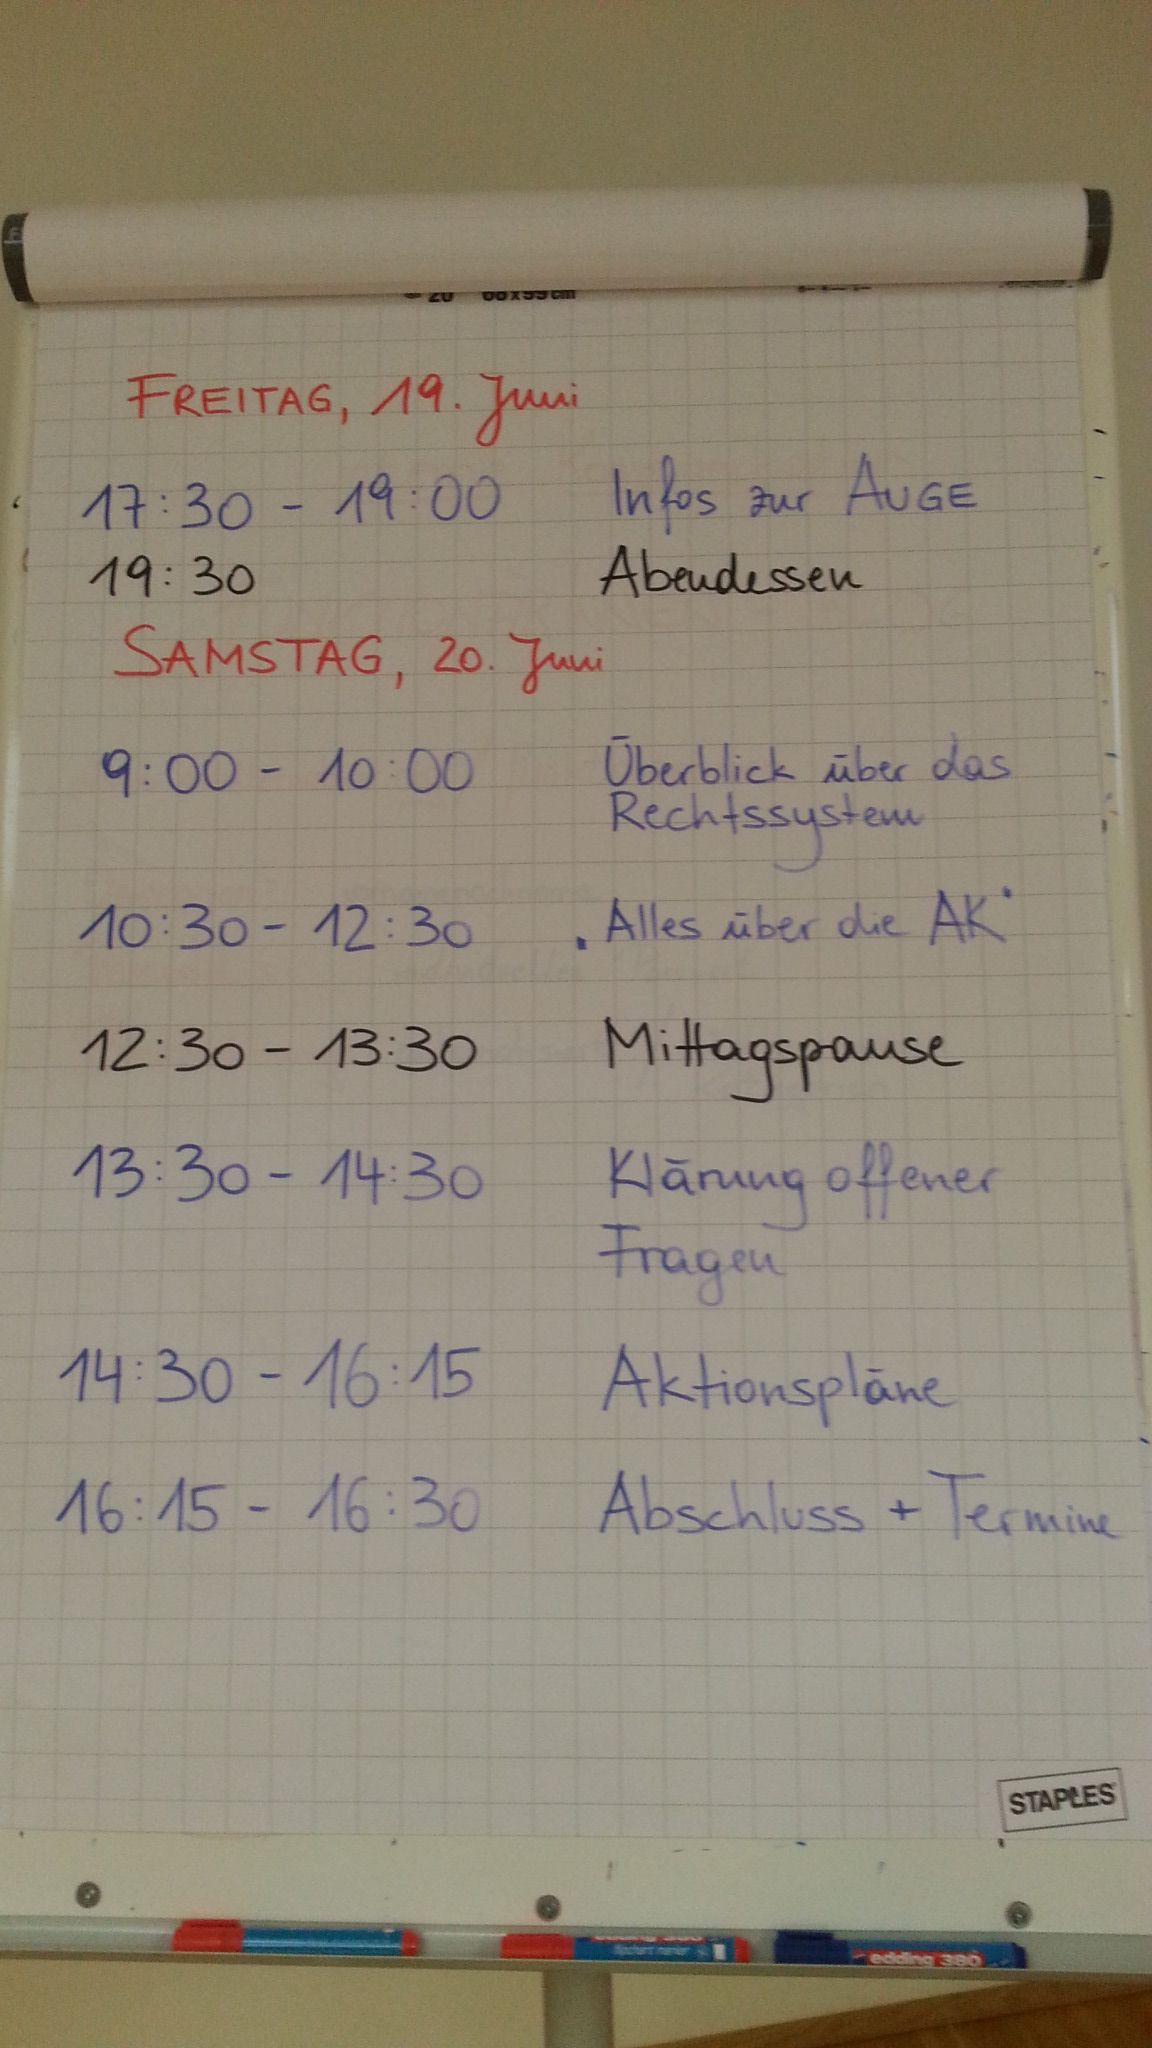 20 68x99cm
FREITAG, 19. Juni
17:30 - 19:00 Infos zur AUGE
19:30 Abendessen
SAMSTAG, 20. Juni
9:00 - 10:00 Überblick über das
Rechtssystem
10:30 - 12:30 "Alles über die AK"
12:30 - 13:30 Mittagspause
13:30 - 14:30 Klärung offener
Fragen
14:30 - 16:15 Aktionspläne
16:15 - 16:30 Abschluss + Termine
STAPLES
edding 380
edding 380